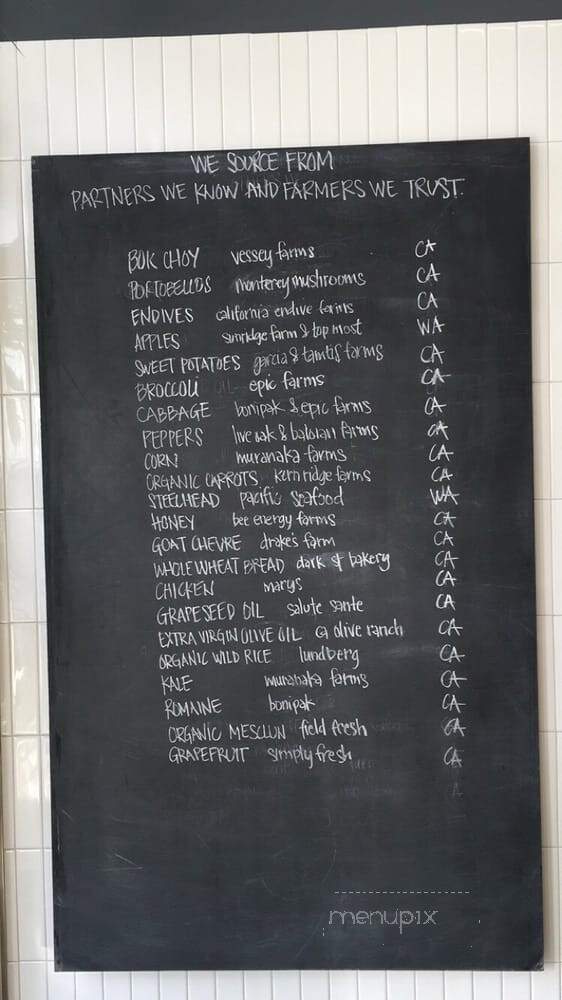 WE SOURCE FROM
PARTNERS WE KNOW AND FARMERS WE TRUST.
BOK CHOY vessey farms CA
PORTOBELLOS monterey mushrooms CA
ENDIVES california endive farms CA
APPLES sunridge farm & top most WA
SWEET POTATOES garcia & farms CA
BROCCOLI epic farms CA
CABBAGE bonipak & epic farms CA
PEPPERS live oak & baloian farms CA
CORN muranaka farms CA
ORGANIC CARROTS kern ridge farms CA
STEELHEAD pacific seafood WA
HONEY bee energy farms CA
GOAT CHEVRE drake's farm CA
WHOLE WHEAT BREAD dark st bakery CA
CHICKEN marys CA
GRAPESEED OIL salute sante CA
EXTRA VIRGIN OLIVE OIL ca olive ranch CA
ORGANIC WILD RICE lundberg CA
KALE muranaka farms CA
ROMAINE bonipak CA
ORGANIC MESCLUN field fresh CA
GRAPEFRUIT simply fresh CA
menupix